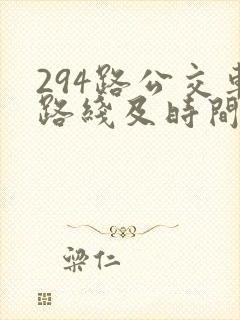 294路公交車
路綫及時間
梁仁